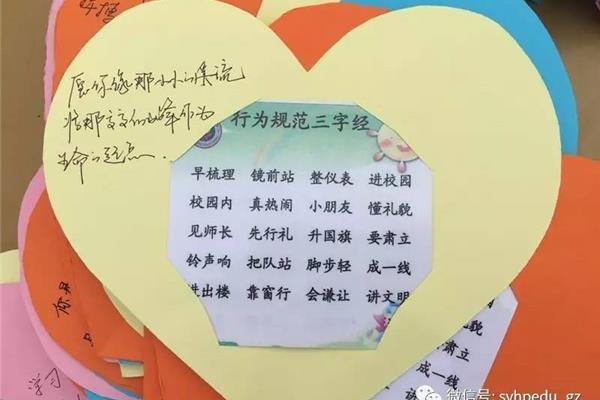 愿你像那小小的溪流
将那高高的峰作为
生命的起点
行为规范三字经
早梳理 镜前站 整仪表 进校园
校园内 真热闹 小朋友 懂礼貌
见师长 先行礼 升国旗 要肃立
铃声响 把队站 脚步轻 成一线
进出楼 靠窗行 会谦让 讲文明
礼貌
肃立
一线
学习
微信号: syhpedu_gz